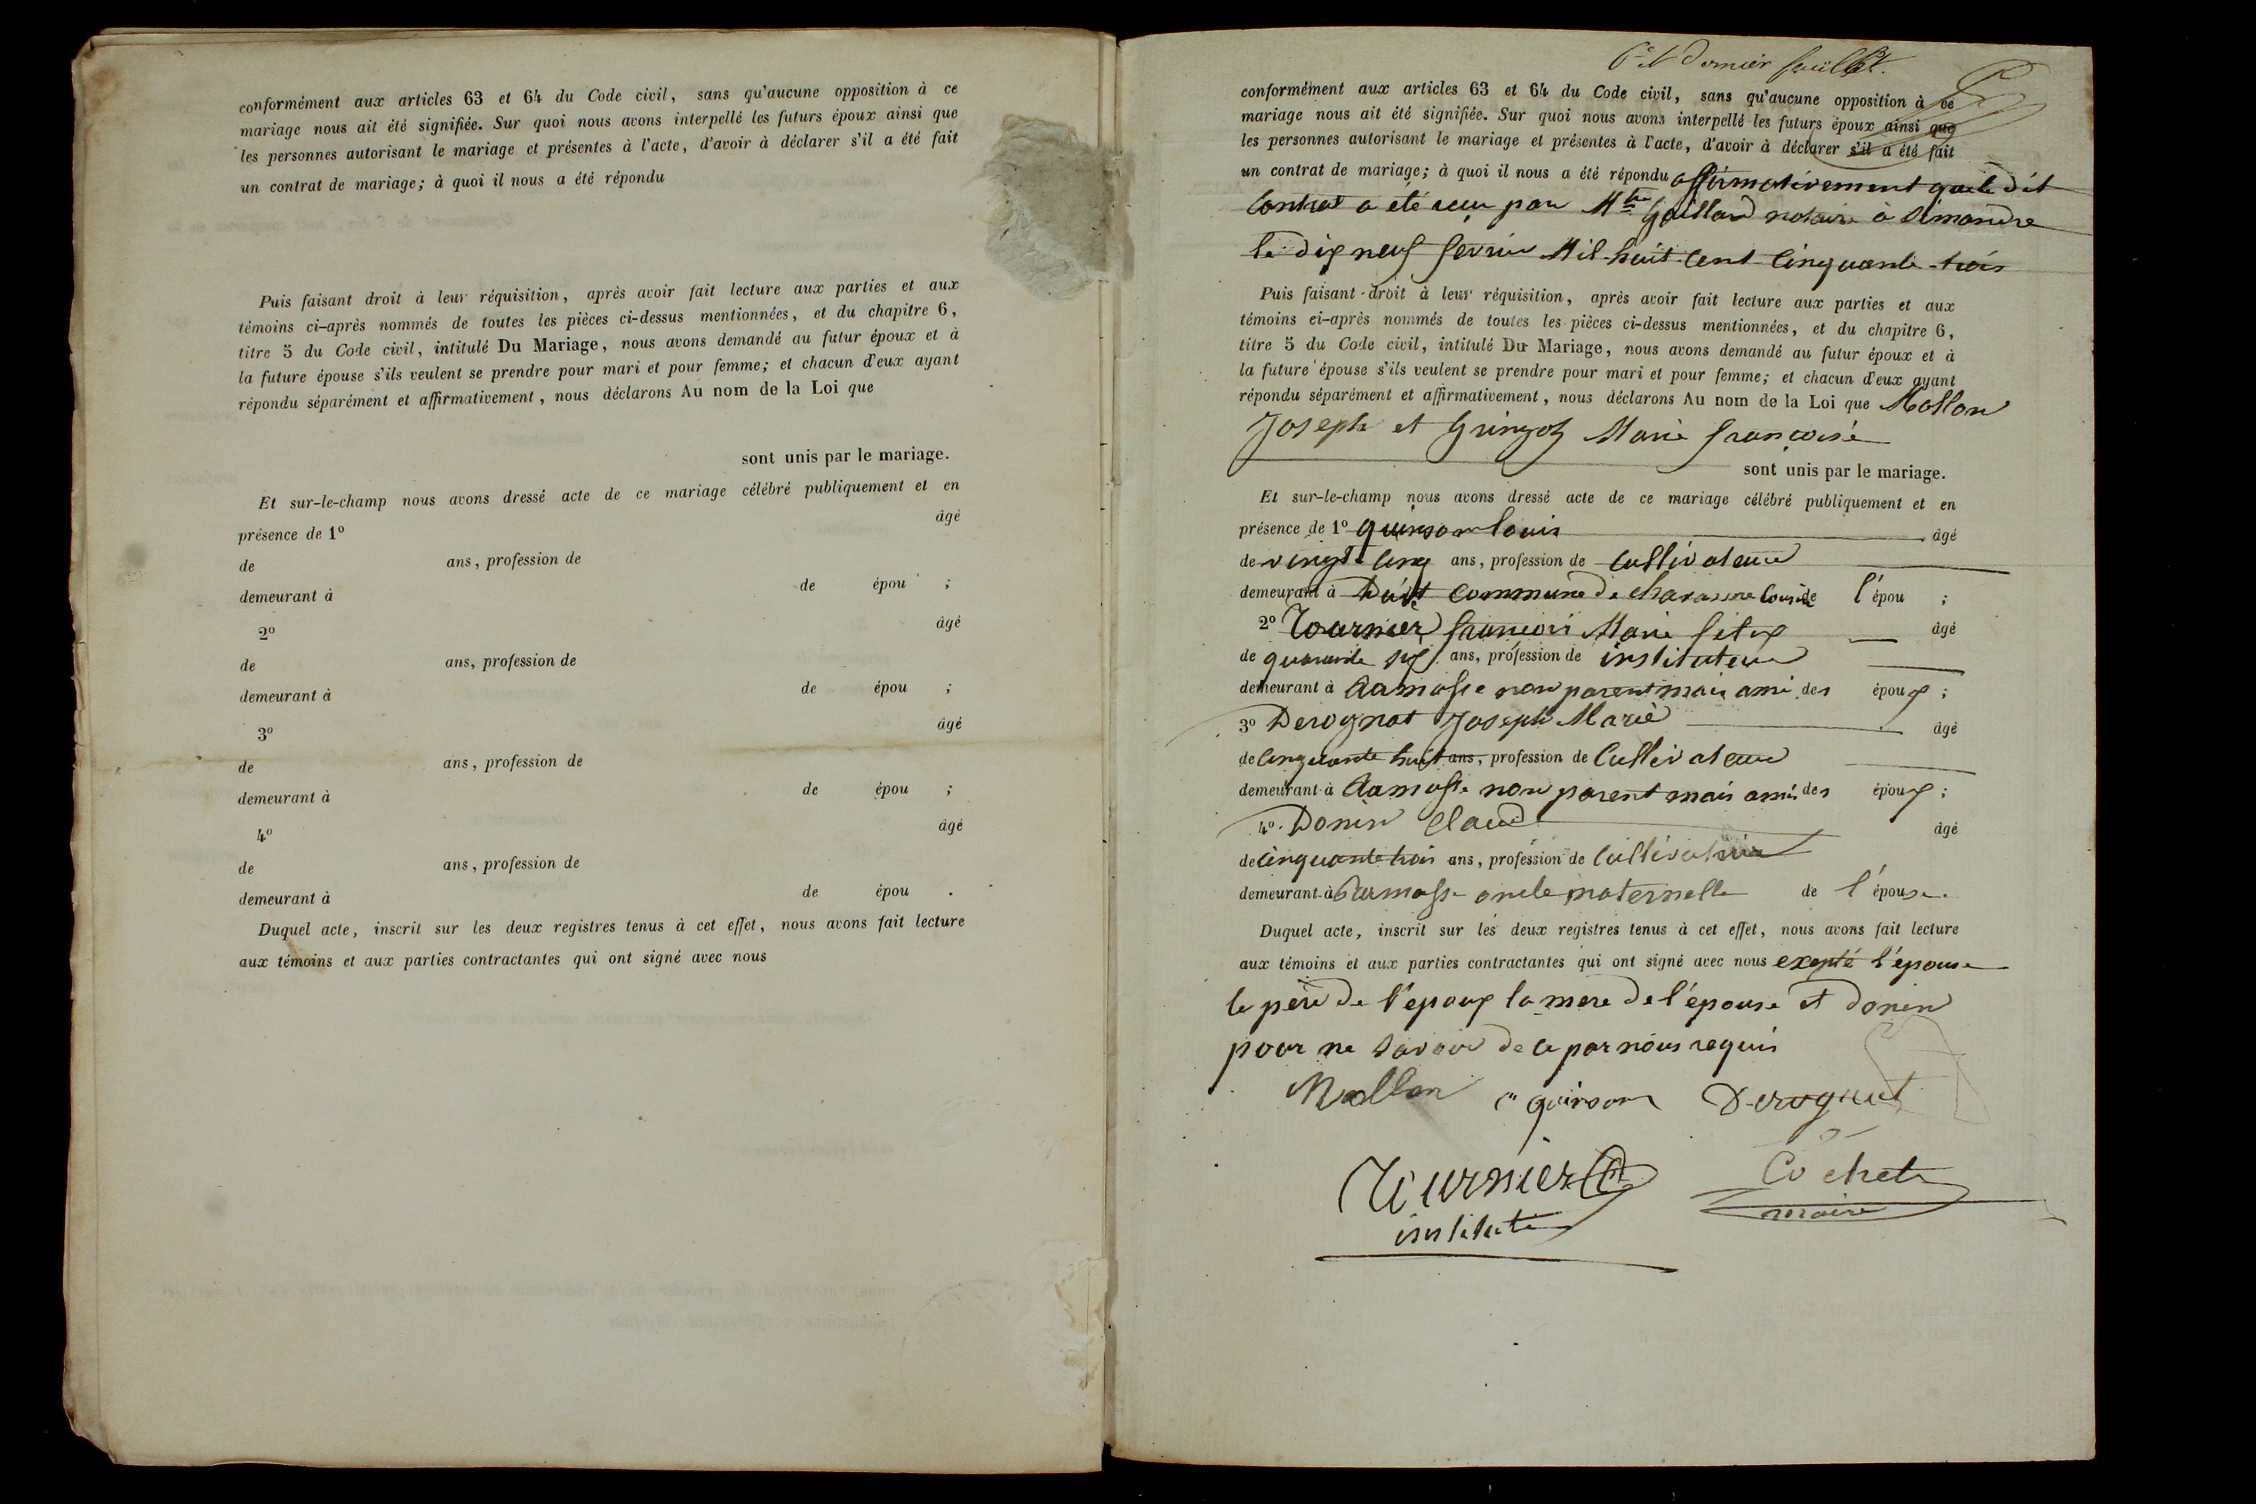 conformément aux articles 63 et 64 du Code civil, sans qu'aucune opposition à ce
mariage nous ait été signifiée. Sur quoi nous avons interpellé les futurs époux ainsi que
les personnes autorisant le mariage et présentes à l'acte, d'avoir à déclarer s'il a été fait
un contrat de mariage; à quoi il nous a été répondu
Puis faisant droit à leur réquisition, après avoir fait lecture aux parties et aux
témoins ci-après nommés de toutes les pièces ci-dessus mentionnées, et du chapitre 6,
titre 5 du Code civil, intitulé Du Mariage, nous avons demandé au futur époux et à
la future épouse s'ils veulent se prendre pour mari et pour femme; et chacun d'eux ayant
répondu séparément et affirmativement, nous déclarons Au nom de la Loi que
sont unis par le mariage.
Et sur-le-champ nous avons dressé acte de ce mariage célébré publiquement et en
présence de 1º âgé
de ans, profession de
demeurant à de épou ;
2º âgé
de ans, profession de
demeurant à de épou ;
3º âgé
de ans, profession de
demeurant à de épou ;
4º âgé
de ans, profession de
demeurant à de épou .
Duquel acte, inscrit sur les deux registres tenus à cet effet, nous avons fait lecture
aux témoins et aux parties contractantes qui ont signé avec nous
6e et dernier feuillet.
conformément aux articles 63 et 64 du Code civil, sans qu'aucune opposition à ce
mariage nous ait été signifiée. Sur quoi nous avons interpellé les futurs époux ainsi que
les personnes autorisant le mariage et présentes à l'acte, d'avoir à déclarer s'il a été fait
un contrat de mariage; à quoi il nous a été répondu affirmativement que le dit
Contrat a été recu par Mtre Gaillard notaire à Simandre
le dix neuf fevrier Mil huit Cent Cinquante trois
Puis faisant droit à leur réquisition, après avoir fait lecture aux parties et aux
témoins ci-après nommés de toutes les pièces ci-dessus mentionnées, et du chapitre 6,
titre 5 du Code civil, intitulé Du Mariage, nous avons demandé au futur époux et à
la future épouse s'ils veulent se prendre pour mari et pour femme; et chacun d'eux ayant
répondu séparément et affirmativement, nous déclarons Au nom de la Loi que Mollon
Joseph et Gringoz Marie françoise
sont unis par le mariage.
Et sur-le-champ nous avons dressé acte de ce mariage célébré publiquement et en
présence de 1º quinson louis âgé
de vingt Cinq ans, profession de Cultivateur
demeurant à commune de Cousin de l'épou ;
2º Tournier françois Marie felix âgé
de quarante six ans, profession de instituteur
demeurant à Ramasse non parent mais ami des époux ;
3º Derognat Joseph Marie âgé
de Cinquante huit ans, profession de Cultivateur
demeurant à Ramasse non parent mais ami des époux ;
4º Donin Claude âgé
de Cinquante trois ans, profession de Cultivateur
demeurant à Ramasse oncle maternelle de l'épouse.
Duquel acte, inscrit sur les deux registres tenus à cet effet, nous avons fait lecture
aux témoins et aux parties contractantes qui ont signé avec nous exepté l'épouse
le père de l'époux la mere de l'épouse et donin
pour ne savoir de ce par nous requis
Mollon quinson Derognat
Tournier Cochet
institutr maire